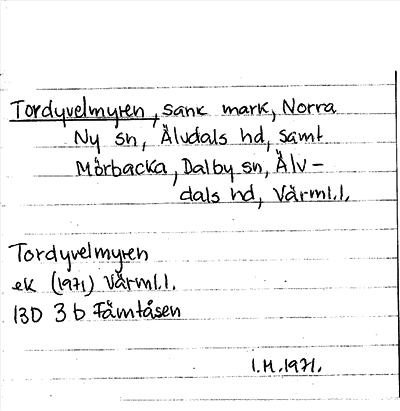 Tordyvelmyren, sank mark, Norra
Ny sn, Älvdals hd, samt
Mörbacka, Dalby sn, Älv-
dals hd, Värml.l.
Tordyvelmyren
ek (1971) Värml.l.
13D 3b Fämtåsen
I.H.1971.